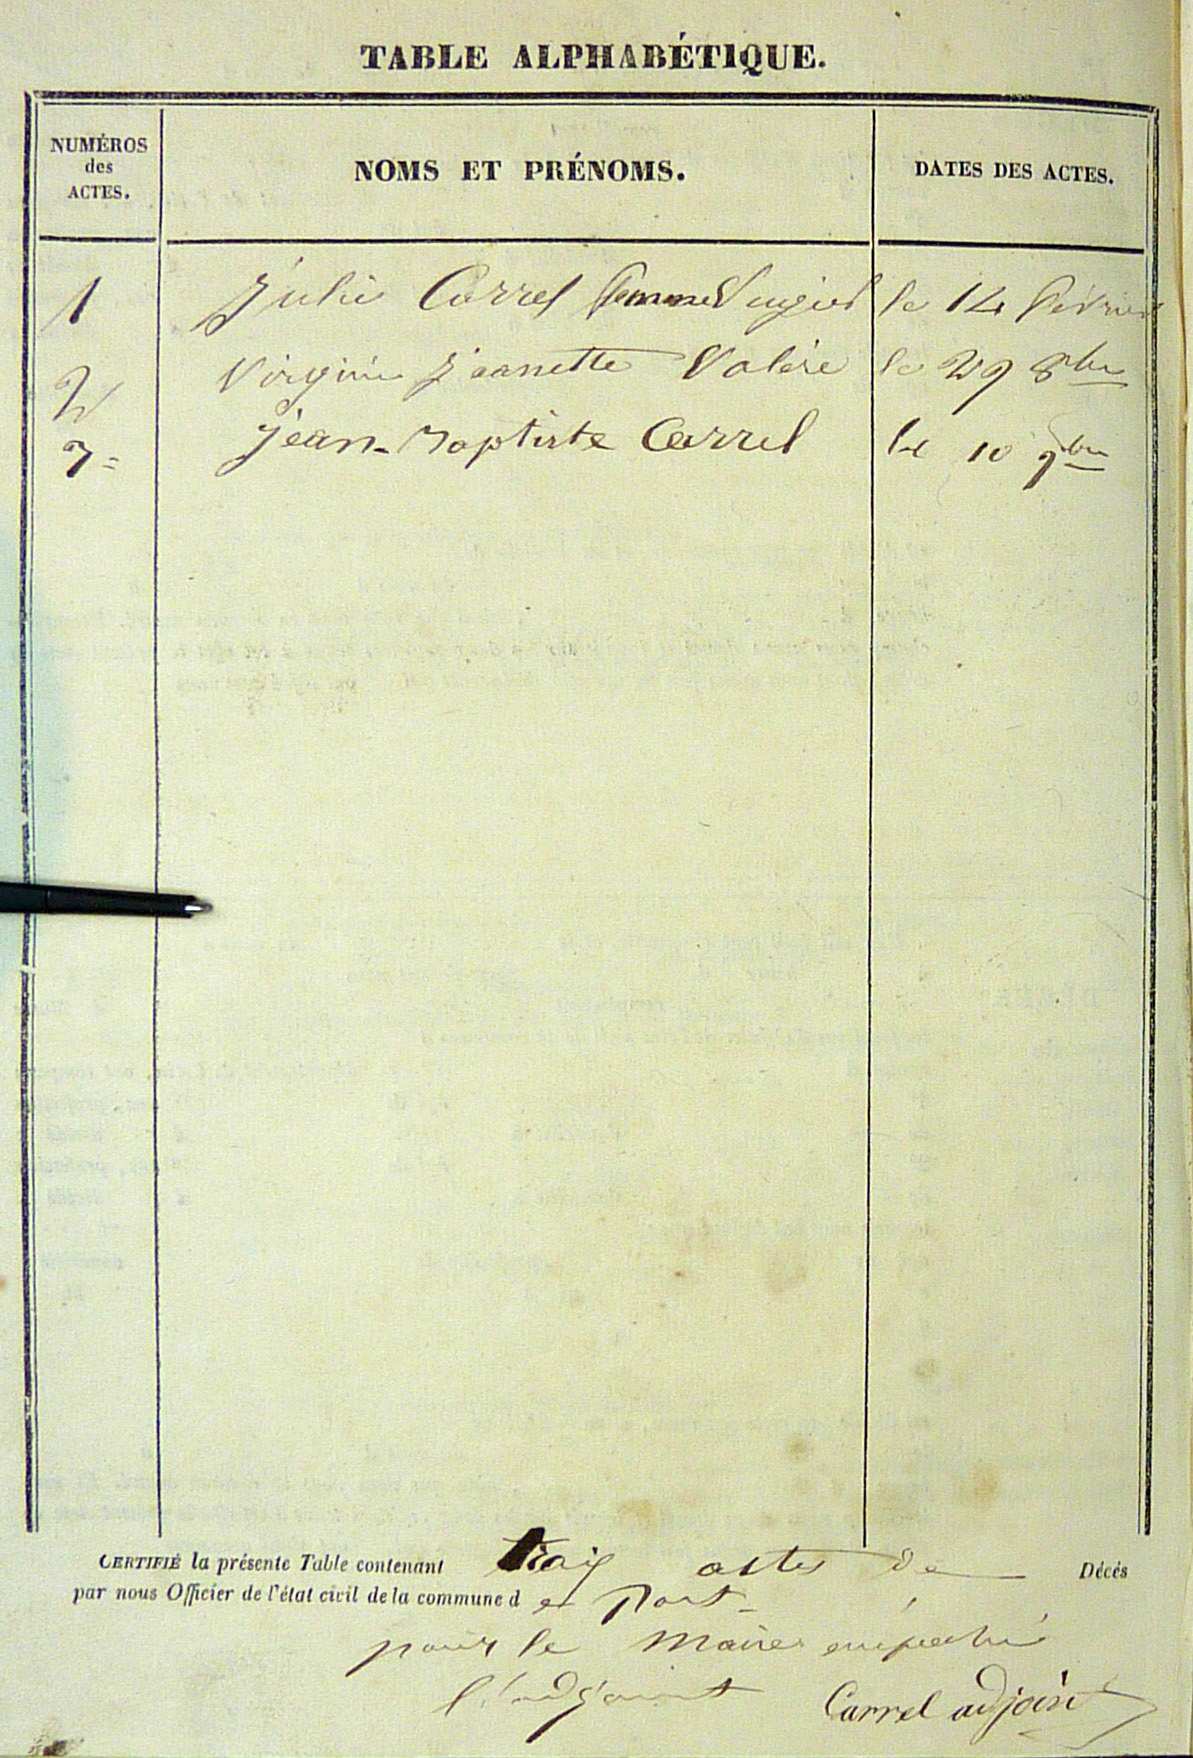 TABLE ALPHABÉTIQUE.
NUMÉROS
des
ACTES.
NOMS ET PRÉNOMS.
DATES DES ACTES.
1 Julie Carrel femme le 14 février
2 Virginie Jeanette Valère le 29 8bre
3= jean-Baptiste Carrel le 10 9bre
CERTIFIÉ la présente Table contenant trois actes de Décés
par nous Officier de l'état civil de la commune d e Pont
pour le Maire empêché
l'adjoint Carrel adjoint